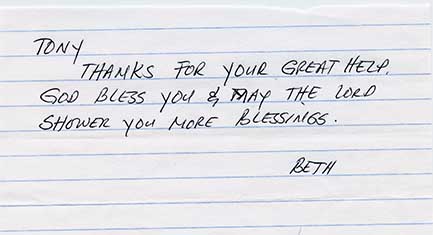 TONY
THANKS FOR YOUR GREAT HELP.
GOD BLESS YOU & MAY THE LORD
SHOWER YOU MORE BLESSINGS.
BETH